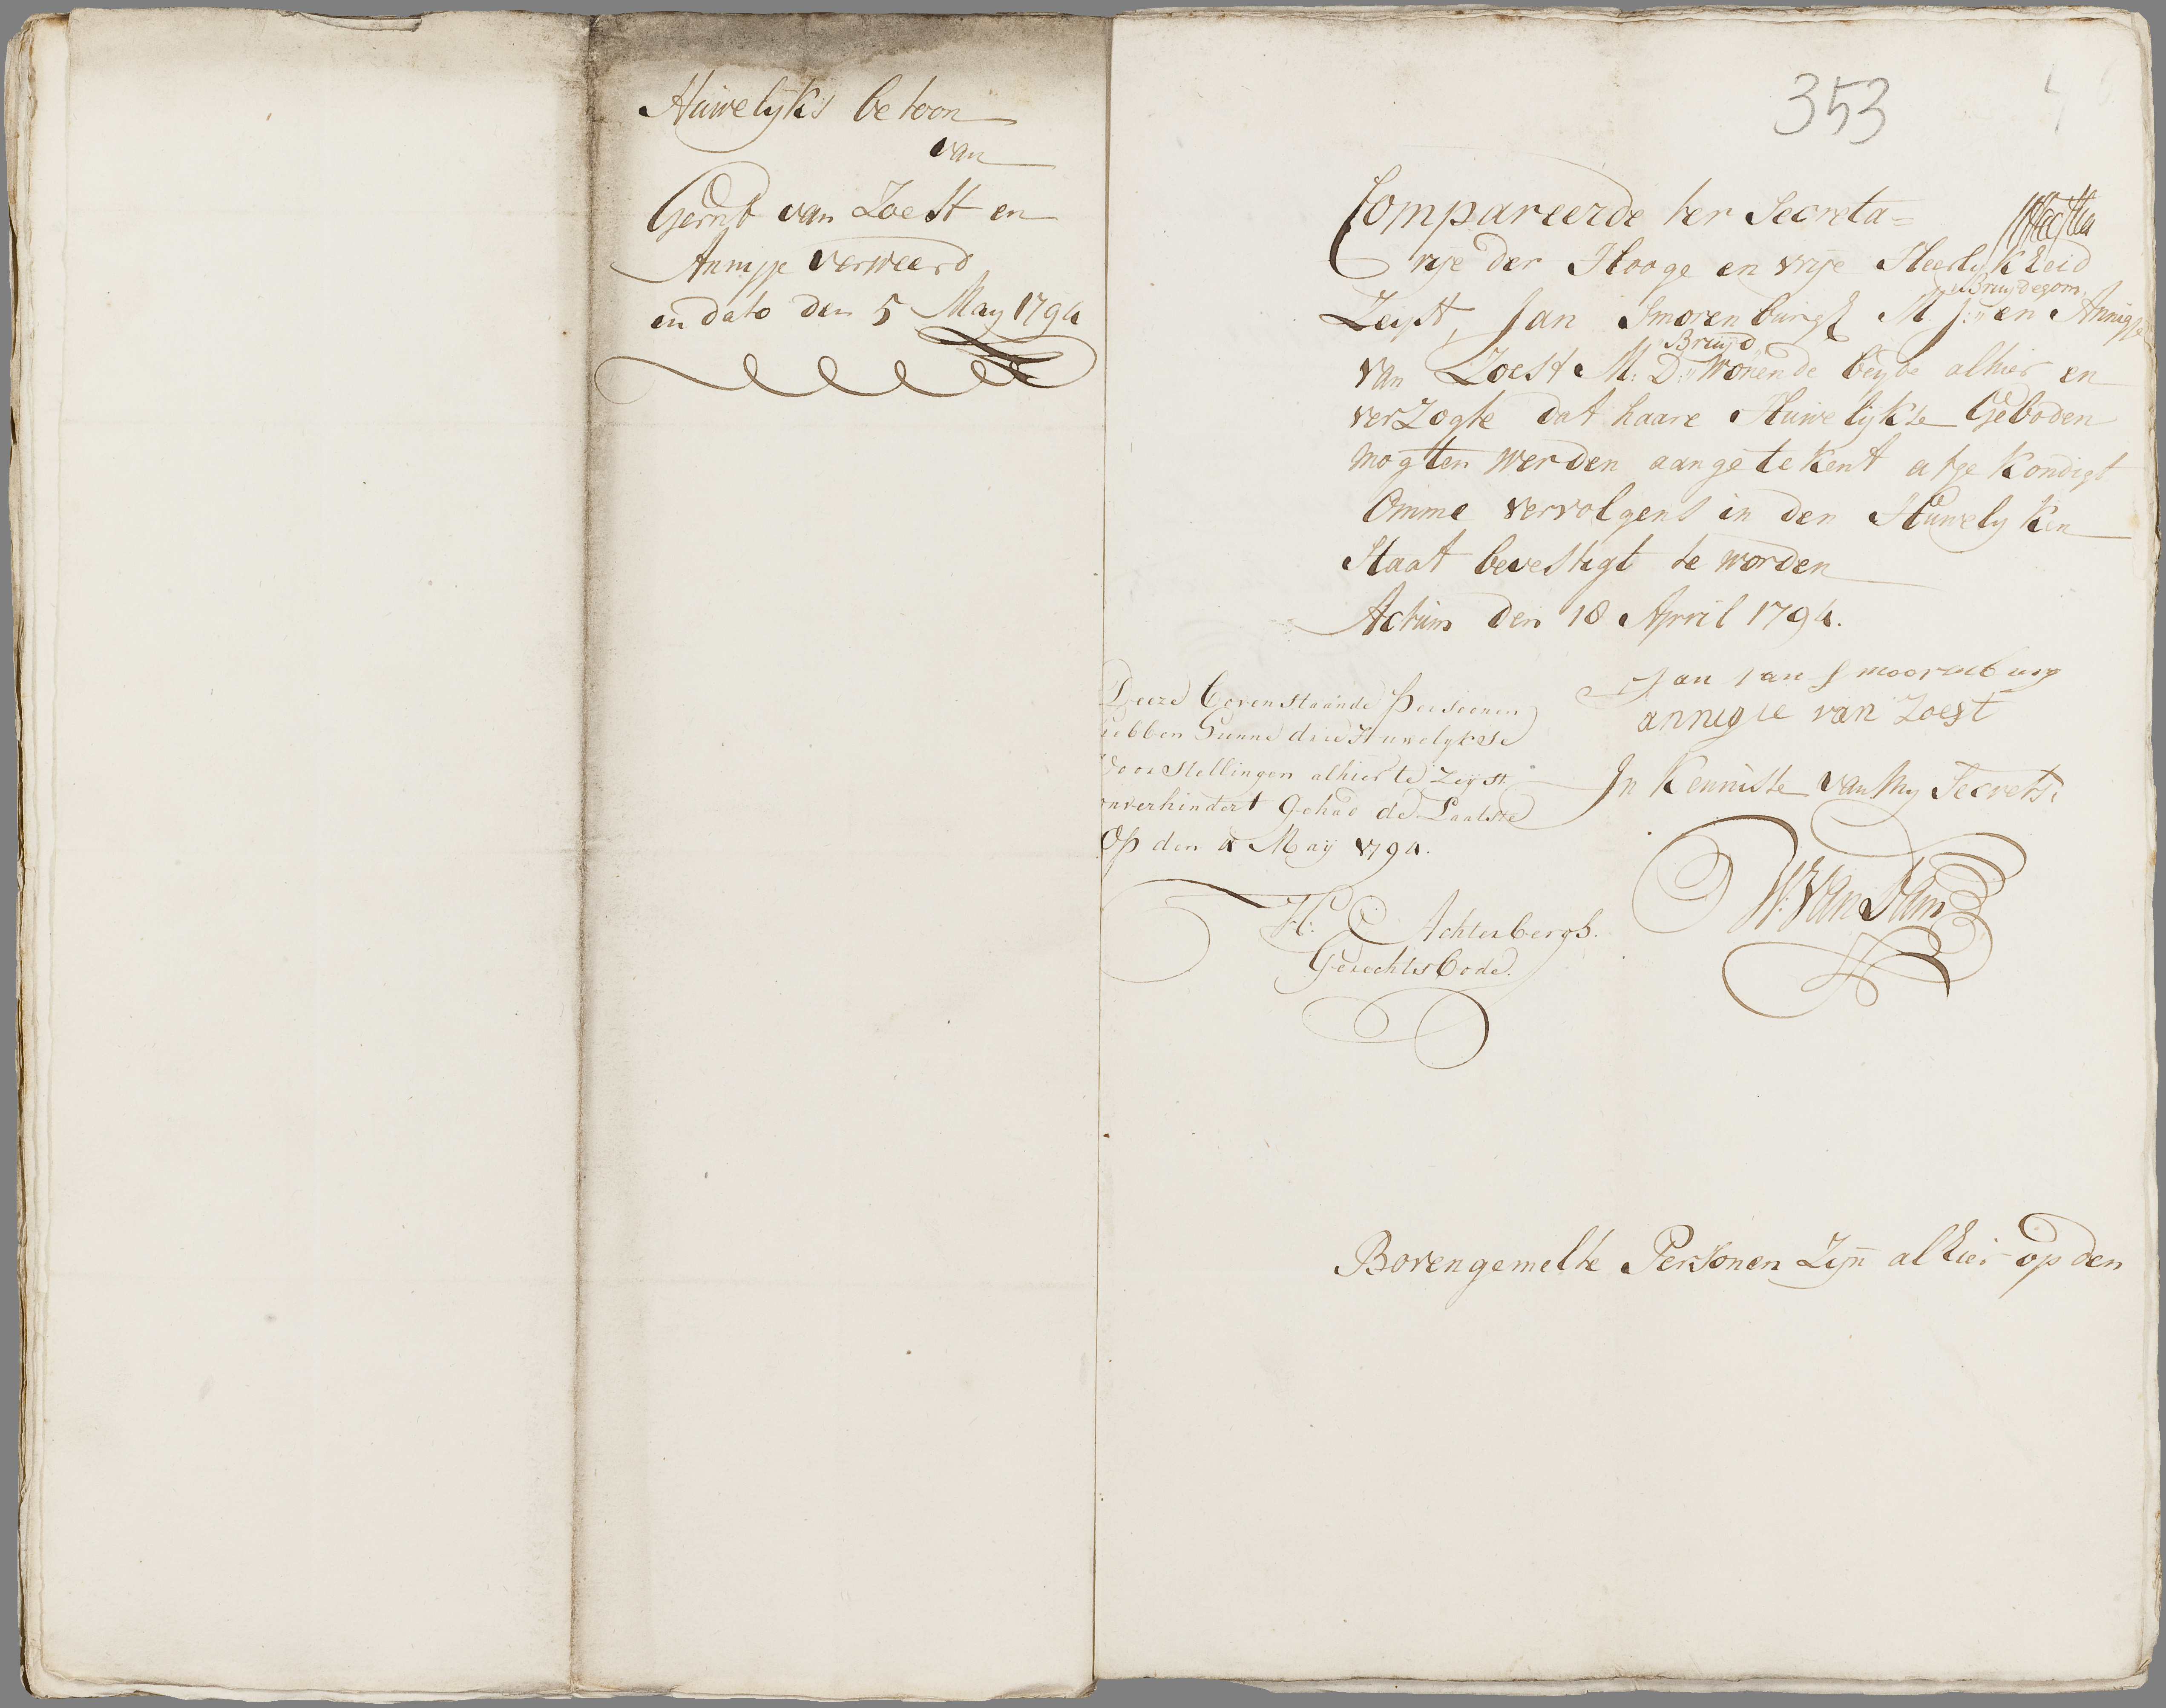 Huwelyks betoon
van
Gerrit van Zoest en
Annigje verweerd
in dato den 5 May 1794
353
Compareerde ter Secreta=
rije der Hooge en vrije Heerlykheid
Bruydegom
Zeyst, Jan Smorenburgh M J: en Annigje
Bruyd
van Zoest M: D: Wonende beyde alhier en
verzogte dat haare Huwelykse Geboden
mogten werden aangetekent afgekondigt
Omme vervolgens in den Huwelyken
Staat bevestigt te worden
Actum den 18 April 1794.
Jan van Smoorenburg
annigie van Zoest
In Kennisse van My Secrets.
W: van Dam
Deeze bovenstaande Persoonen
hebben Hunne drie Huwelykse
Voorstellingen alhier te Zeyst
onverhindert Gehad de Laatste
Op den 4 Maij 1794.
H: C Achterbergh.
Gerechtsbode.
Bovengemelte Personen Zijn alhier op den